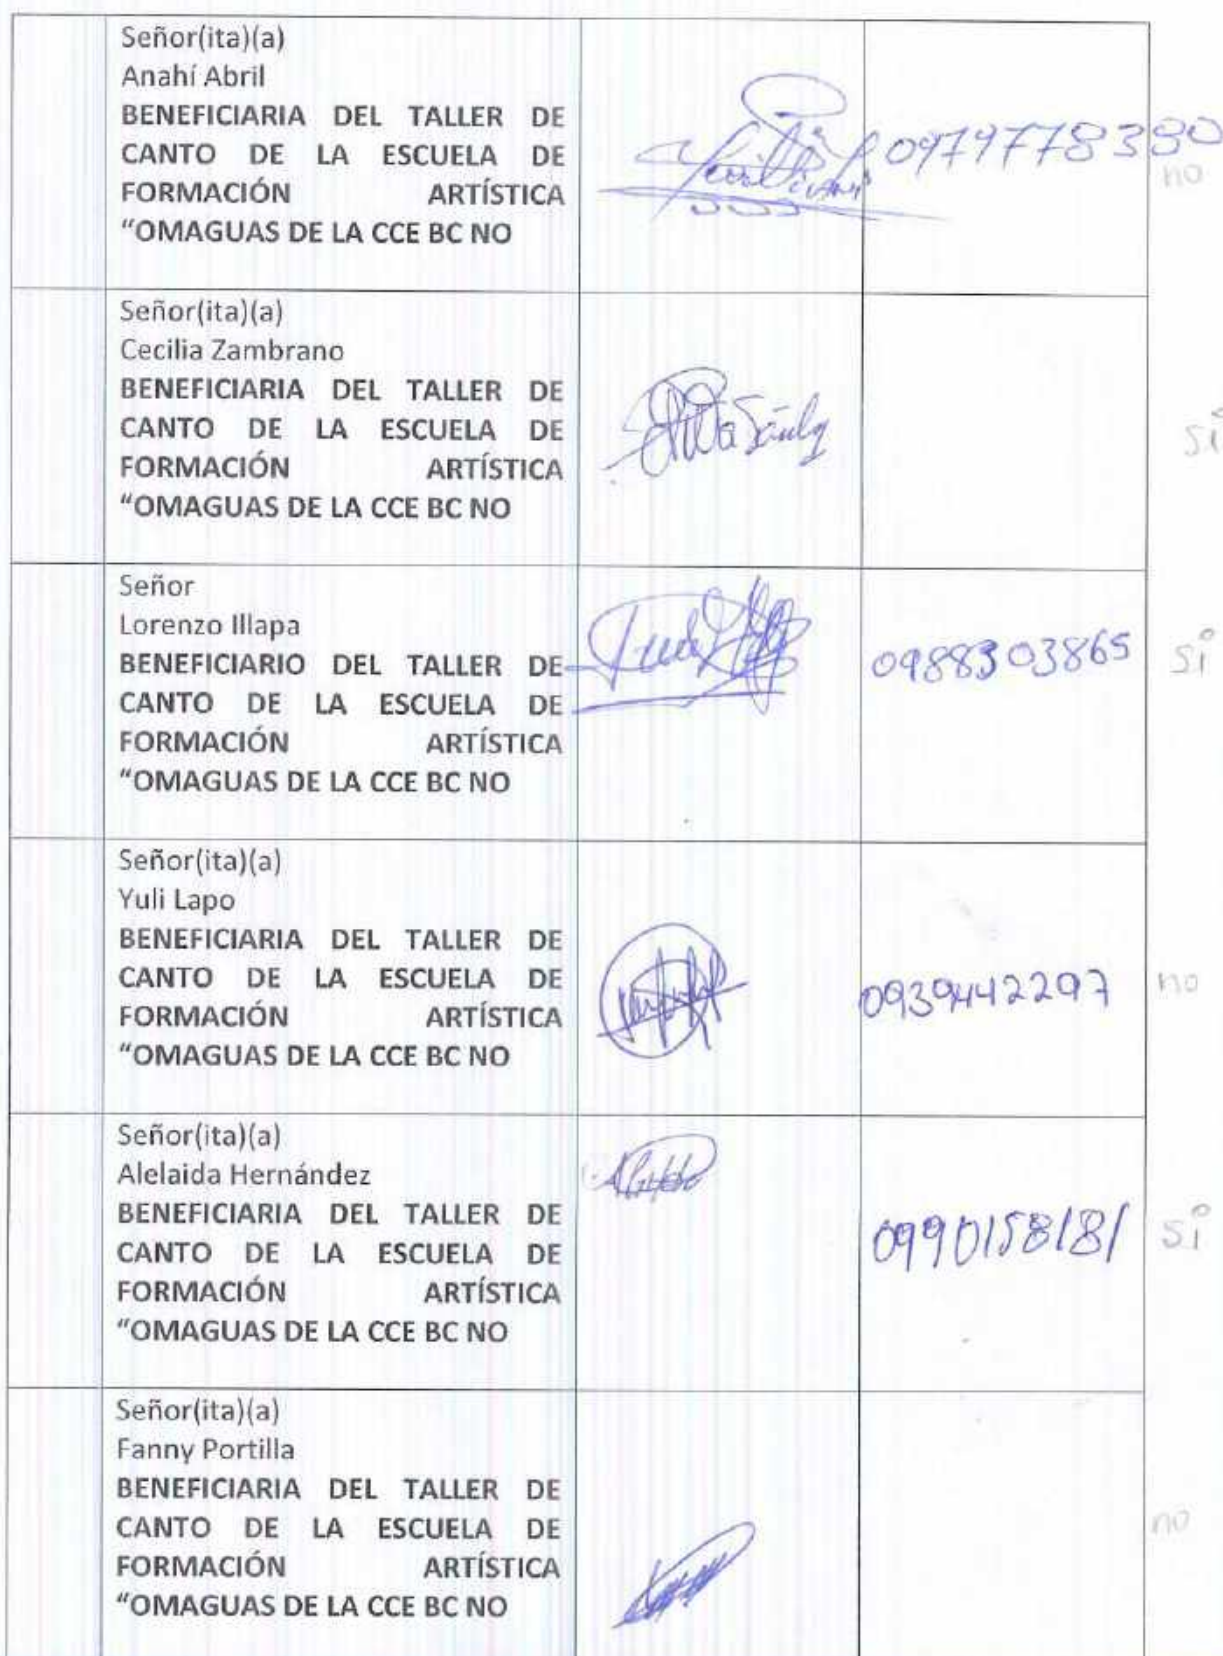 Señor(ita)(a)
Anahí Abril
BENEFICIARIA DEL TALLER DE
CANTO DE LA ESCUELA DE
FORMACIÓN ARTÍSTICA
"OMAGUAS DE LA CCE BC NO
0979778380
no
Señor(ita)(a)
Cecilia Zambrano
BENEFICIARIA DEL TALLER DE
CANTO DE LA ESCUELA DE
FORMACIÓN ARTÍSTICA
"OMAGUAS DE LA CCE BC NO
si
Señor
Lorenzo Illapa
BENEFICIARIO DEL TALLER DE
CANTO DE LA ESCUELA DE
FORMACIÓN ARTÍSTICA
"OMAGUAS DE LA CCE BC NO
0988303865
si
Señor(ita)(a)
Yuli Lapo
BENEFICIARIA DEL TALLER DE
CANTO DE LA ESCUELA DE
FORMACIÓN ARTÍSTICA
"OMAGUAS DE LA CCE BC NO
0939442297
no
Señor(ita)(a)
Alelaida Hernández
BENEFICIARIA DEL TALLER DE
CANTO DE LA ESCUELA DE
FORMACIÓN ARTÍSTICA
"OMAGUAS DE LA CCE BC NO
0990158181
si
Señor(ita)(a)
Fanny Portilla
BENEFICIARIA DEL TALLER DE
CANTO DE LA ESCUELA DE
FORMACIÓN ARTÍSTICA
"OMAGUAS DE LA CCE BC NO
no